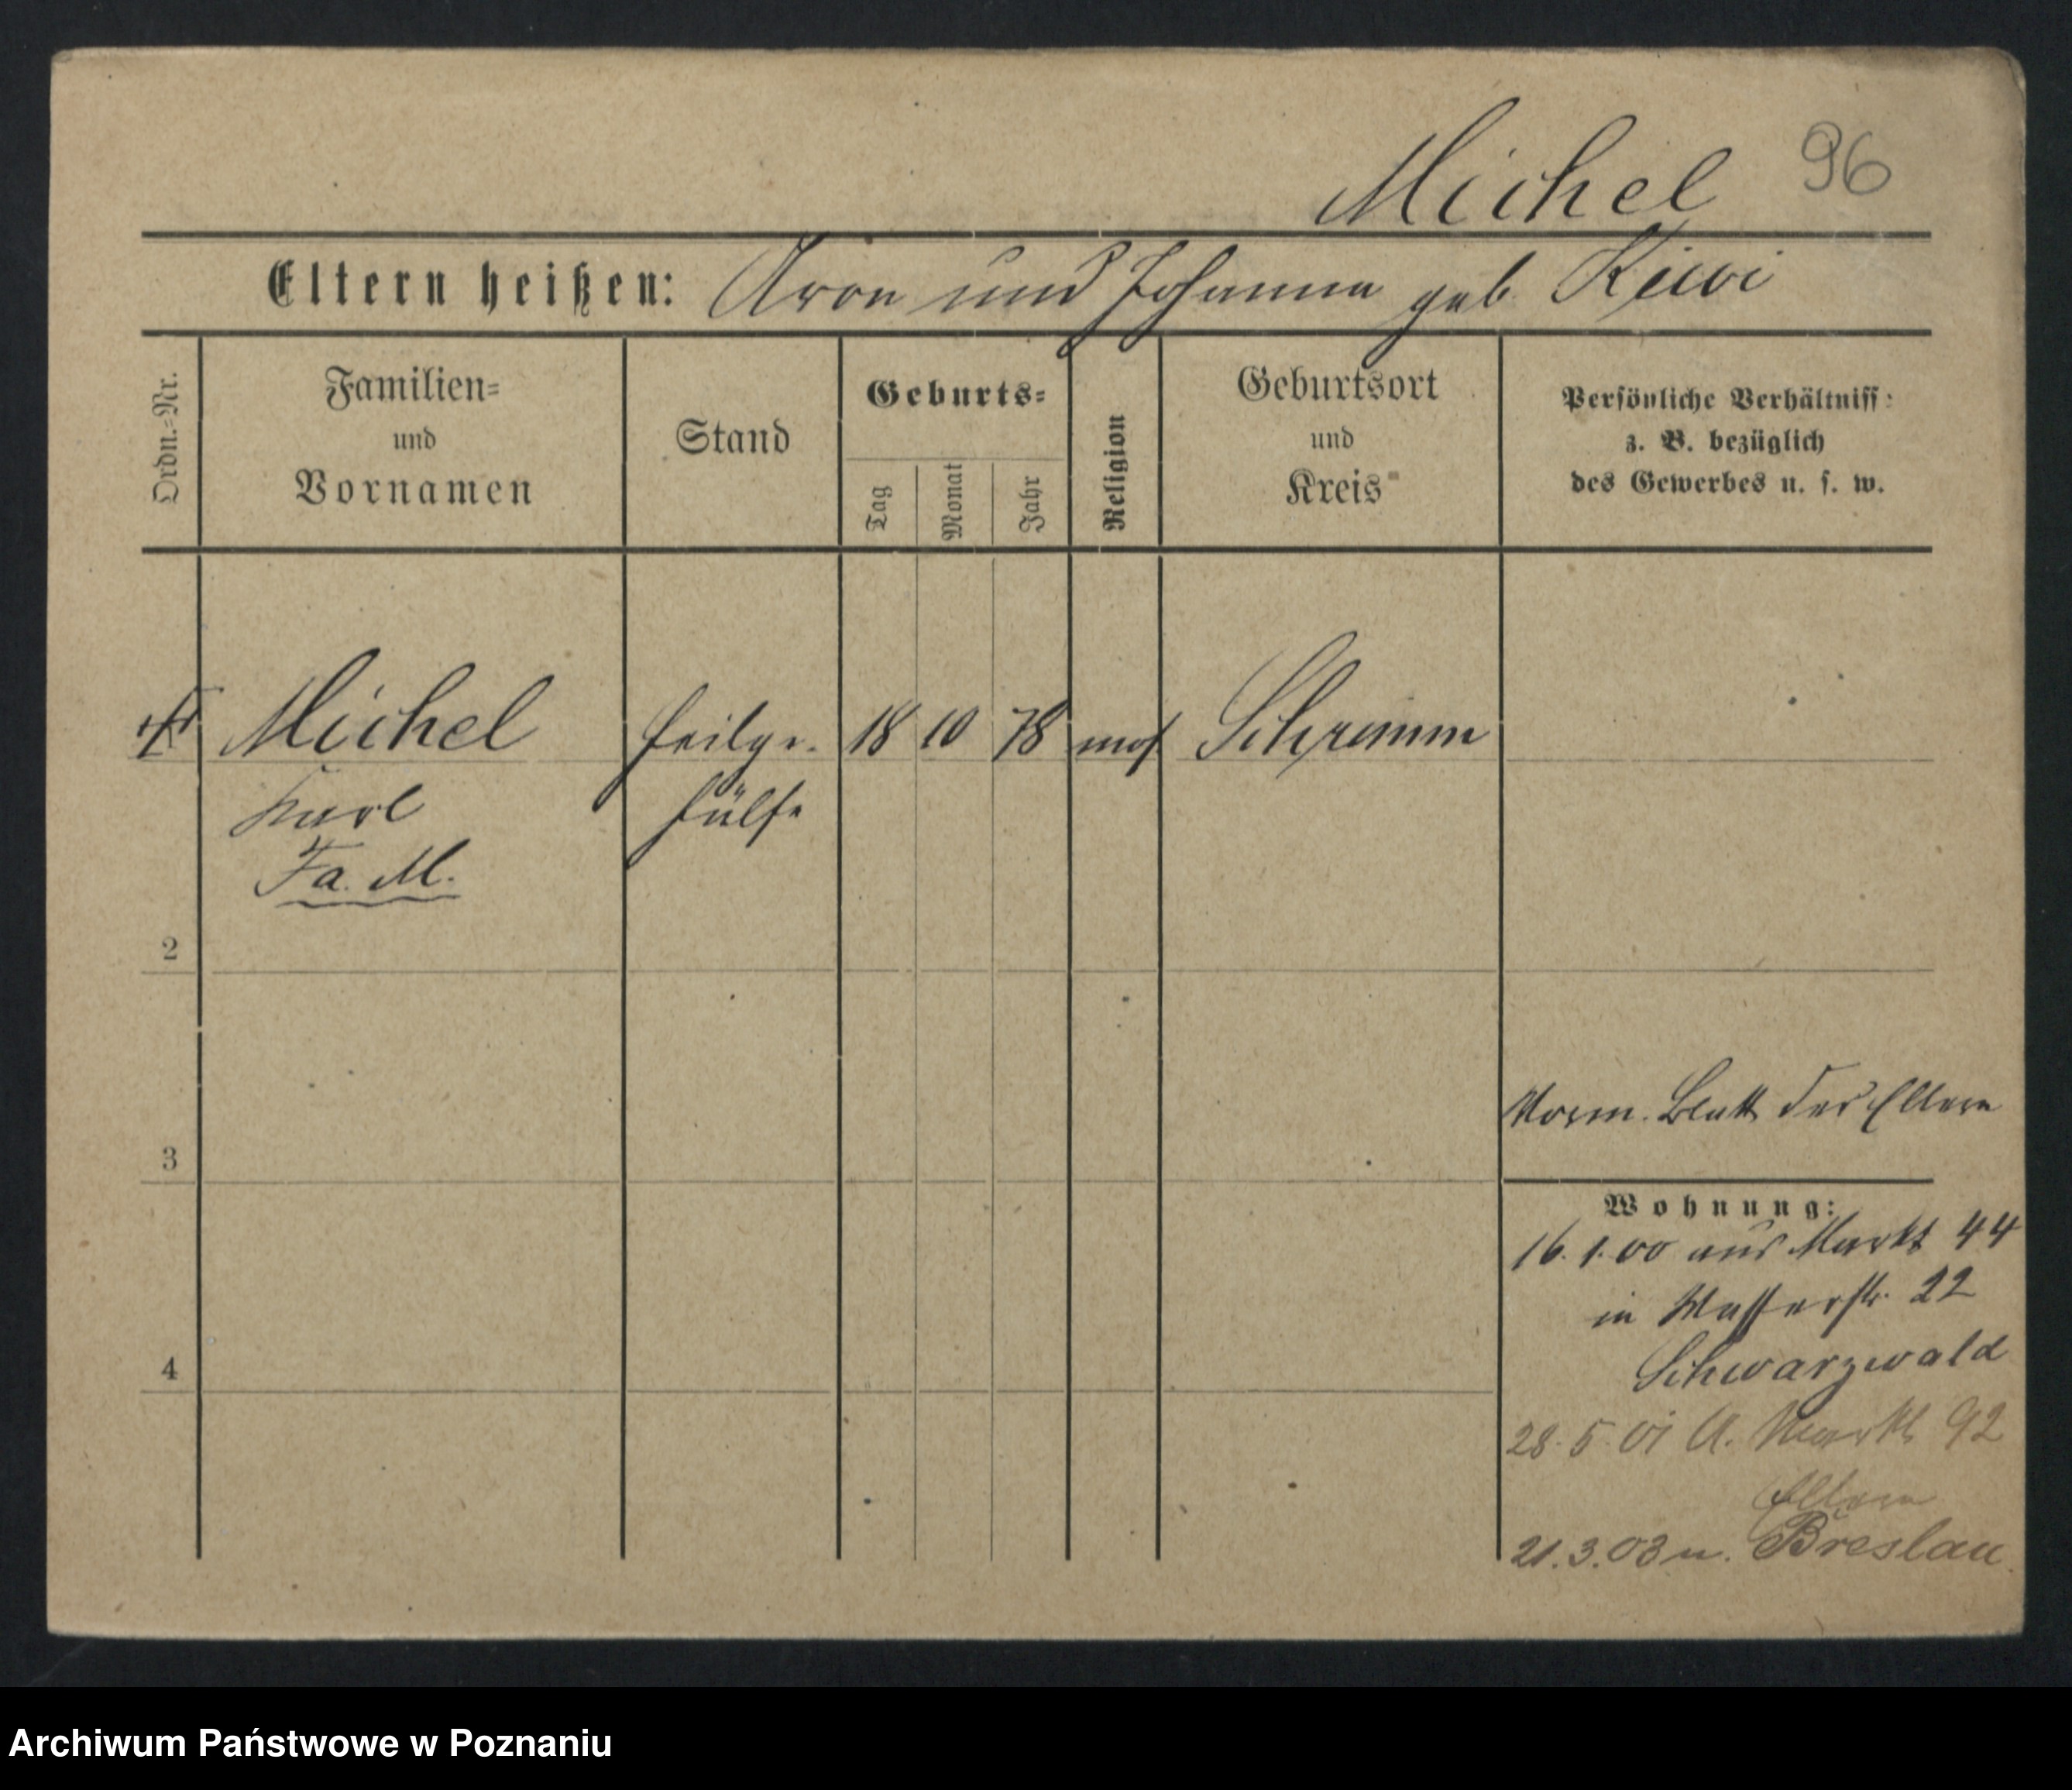 Michel 96
Eltern heißen: Aron und Johanna geb Kiwi
Ordn.=Nr.
Familien=
und
Vornamen
Stand
Geburts=
Tag
Monat
Jahr
Religion
Geburtsort
und
Kreis
Persönliche Verhältniss:
z. B. bezüglich
des Gewerbes u. s. w.
Michel 18 10 78 mos Schrimm
Karl
hülfe
Fa. M.
2
3
Vorm. Blatt der Eltern
Wohnung:
16. 1. 00 aus Markt 44
in Wasserstr. 22
Schwarzwald
4
28. 5. 01 A. Markt 92
Eltern
21. 3. 03 n. Breslau
Archiwum Państwowe w Poznaniu